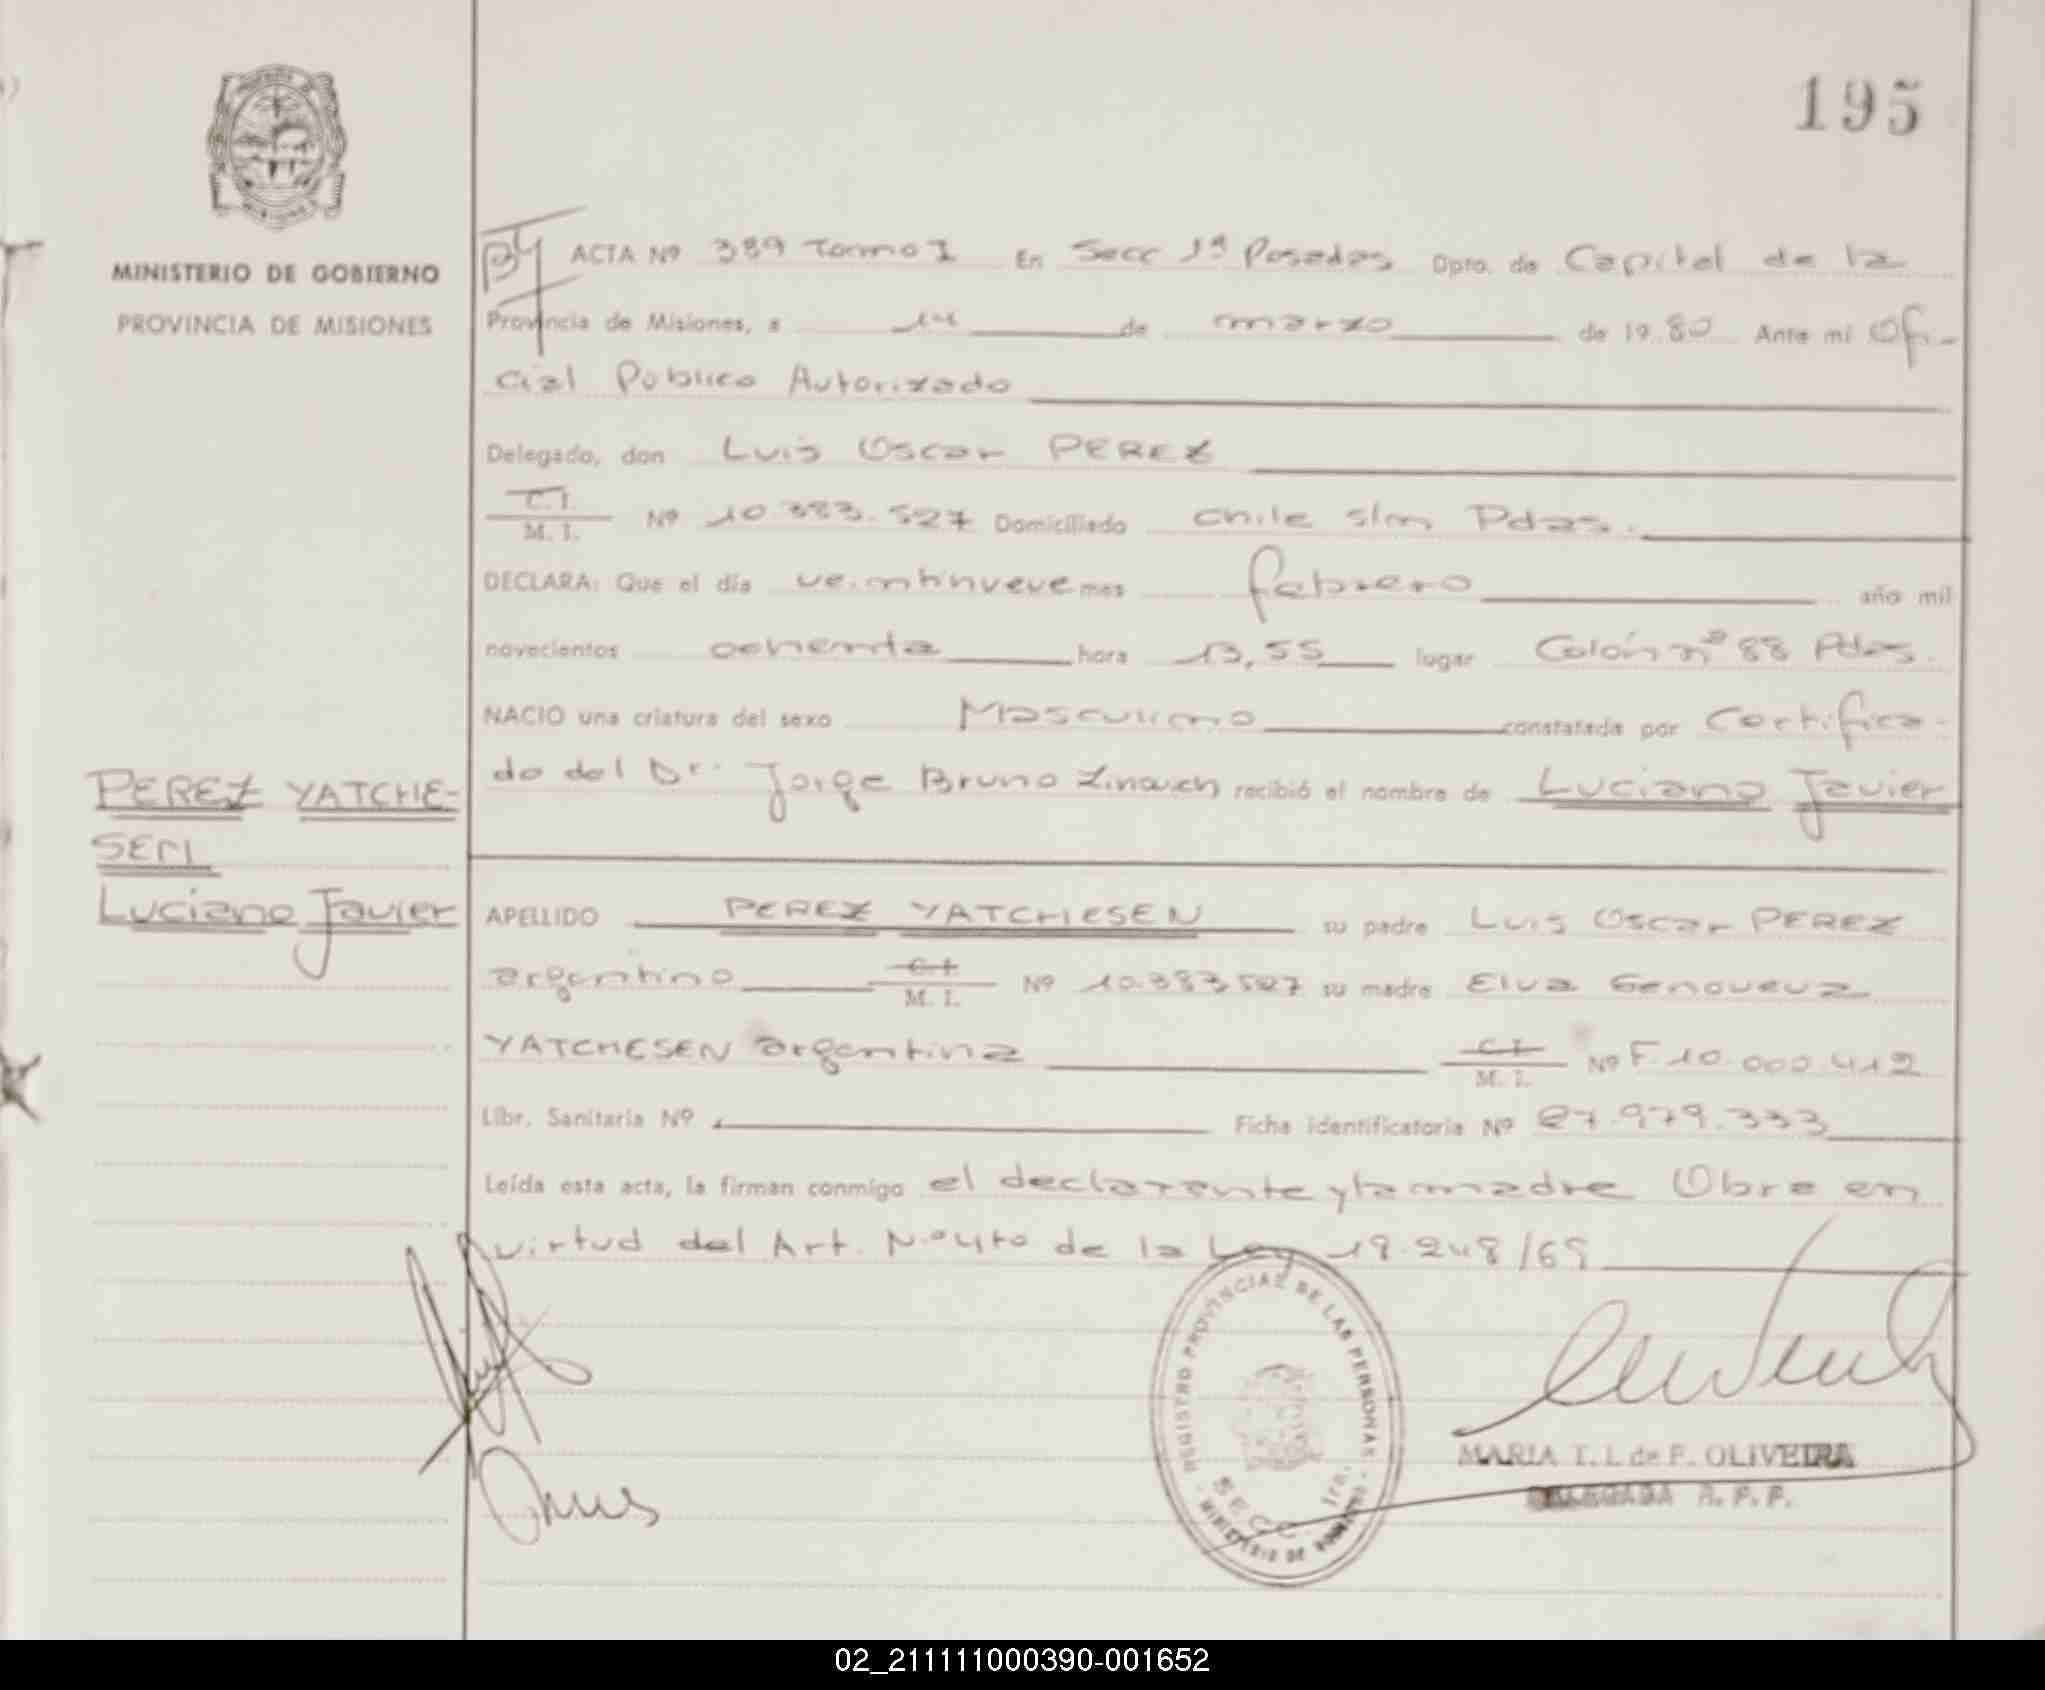 195
MINISTERIO DE GOBIERNO
PROVINCIA DE MISIONES
ACTA Nº 389 Tomo I En Secc 1ª Posadas Dpto. de Capital de la
Provincia de Misiones, a 14 de marzo de 1980 Ante mi Ofi-
cial Publico Autorizado
Delegado, don Luis Oscar PEREZ
C. I.
M. I. Nº 10.383.527 Domiciliado Chile s/n Pdas.
DECLARA: Que el día veintinueve mes febrero año mil
novecientos ochenta hora 13,55 lugar Colón nº 88 Pdas.
NACIO una criatura del sexo Masculino constatada por Certifica-
do del Dr. Jorge Bruno Zinovich recibió el nombre de Luciano Javier
PEREZ YATCHE-
SEN
Luciano Javier
APELLIDO PEREZ YATCHESEN su padre Luis Oscar PEREZ
argentino C. I. M. I. Nº 10.383.527 su madre Elva Genoveva
YATCHESEN argentina C. I. M. I. Nº F. 10.000.412
Libr. Sanitaria Nº Ficha identificatoria Nº 27.979.333
Leída esta acta, la firman conmigo el declarante y la madre Obre en
virtud del Art. Nº 4to de la Ley 18.248/69
REGISTRO PROVINCIAL DE LAS PERSONAS
SECC. 1ra.
MINISTERIO DE GOBIERNO
MARIA T. L. de F. OLIVEIRA
DELEGADA R. P. P.
02_211111000390-001652